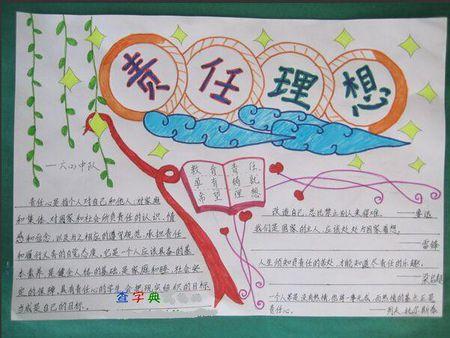 责任理想
一六四中队
教育责任
孕育的就
希望理想
责任心是指个人对自己和他人、对家庭
和集体、对国家和社会所负责任的认识、情
感和信念，以及与之相应的遵守规范、承担责任
和履行义务的自觉态度。它是一个人应该具备的基
本素养，是健全人格的基础，是家庭和睦，社会安
定的保障。具有责任心的学生，会
当成是自己的目标。
查字典
改造自己，总比禁止别人来得难。——鲁迅
我们是国家的主人，应该处处为国家着想。
——雷锋
人生须知负责任的苦处，才能知道尽责任的乐趣。
——梁启超
一个人若是没有热情，他将一事无成，而热情的基点正是
责任心。——列夫·托尔斯泰